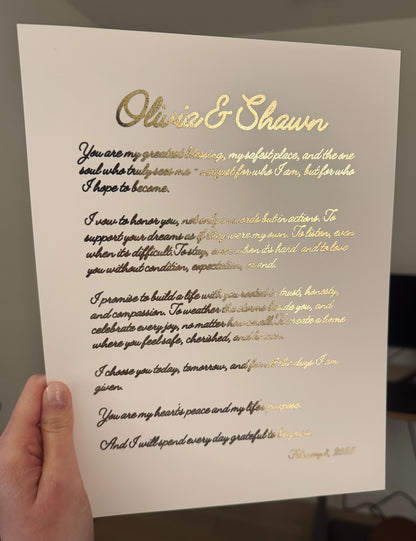 Olivia & Shawn
You are my greatest blessing, my safest place, and the one
soul who truly sees me - not just for who I am, but for who
I hope to become.
I vow to honor you, not only in words but in actions. To
support your dreams as if they were my own. To listen, even
when it's difficult. To stay, even when it's hard and to love
you without condition, expectation, or end.
I promise to build a life with you rooted in trust, honesty,
and compassion. To weather the storms beside you, and
celebrate every joy, no matter how small. To create a home
where you feel safe, cherished, and known.
I choose you today, tomorrow, and for all the days I am
given.
You are my heart's peace and my life's purpose.
And I will spend every day grateful to
February 8, 2025